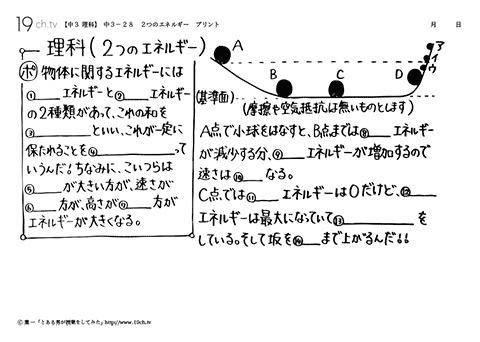 19ch.tv 【中3 理科】 中3-28 2つのエネルギー プリント 月 日
理科(2つのエネルギー)
ポ 物体に関するエネルギーには
①____エネルギーと②____エネルギー
の2種類があって、これの和を
③________といい、これが一定に
保たれることを④__________って
いうんだ!ちなみに、こいつらは
⑤____が大きい方が、速さが
⑥____方が、高さが⑦____方が
エネルギーが大きくなる。
A
B
C
D
ア
イ
ウ
(基準面)
(摩擦や空気抵抗は無いものとします)
A点で小球をはなすと、B点までは⑧____エネルギー
が減少する分、⑨____エネルギーが増加するので
速さは⑩____なる。
C点では⑪____エネルギーは0だけど、⑫____
エネルギーは最大になっていて⑬__________を
している。そして坂を⑭____まで上がるんだ!!
© 葉一「とある男が授業をしてみた」http://www.19ch.tv